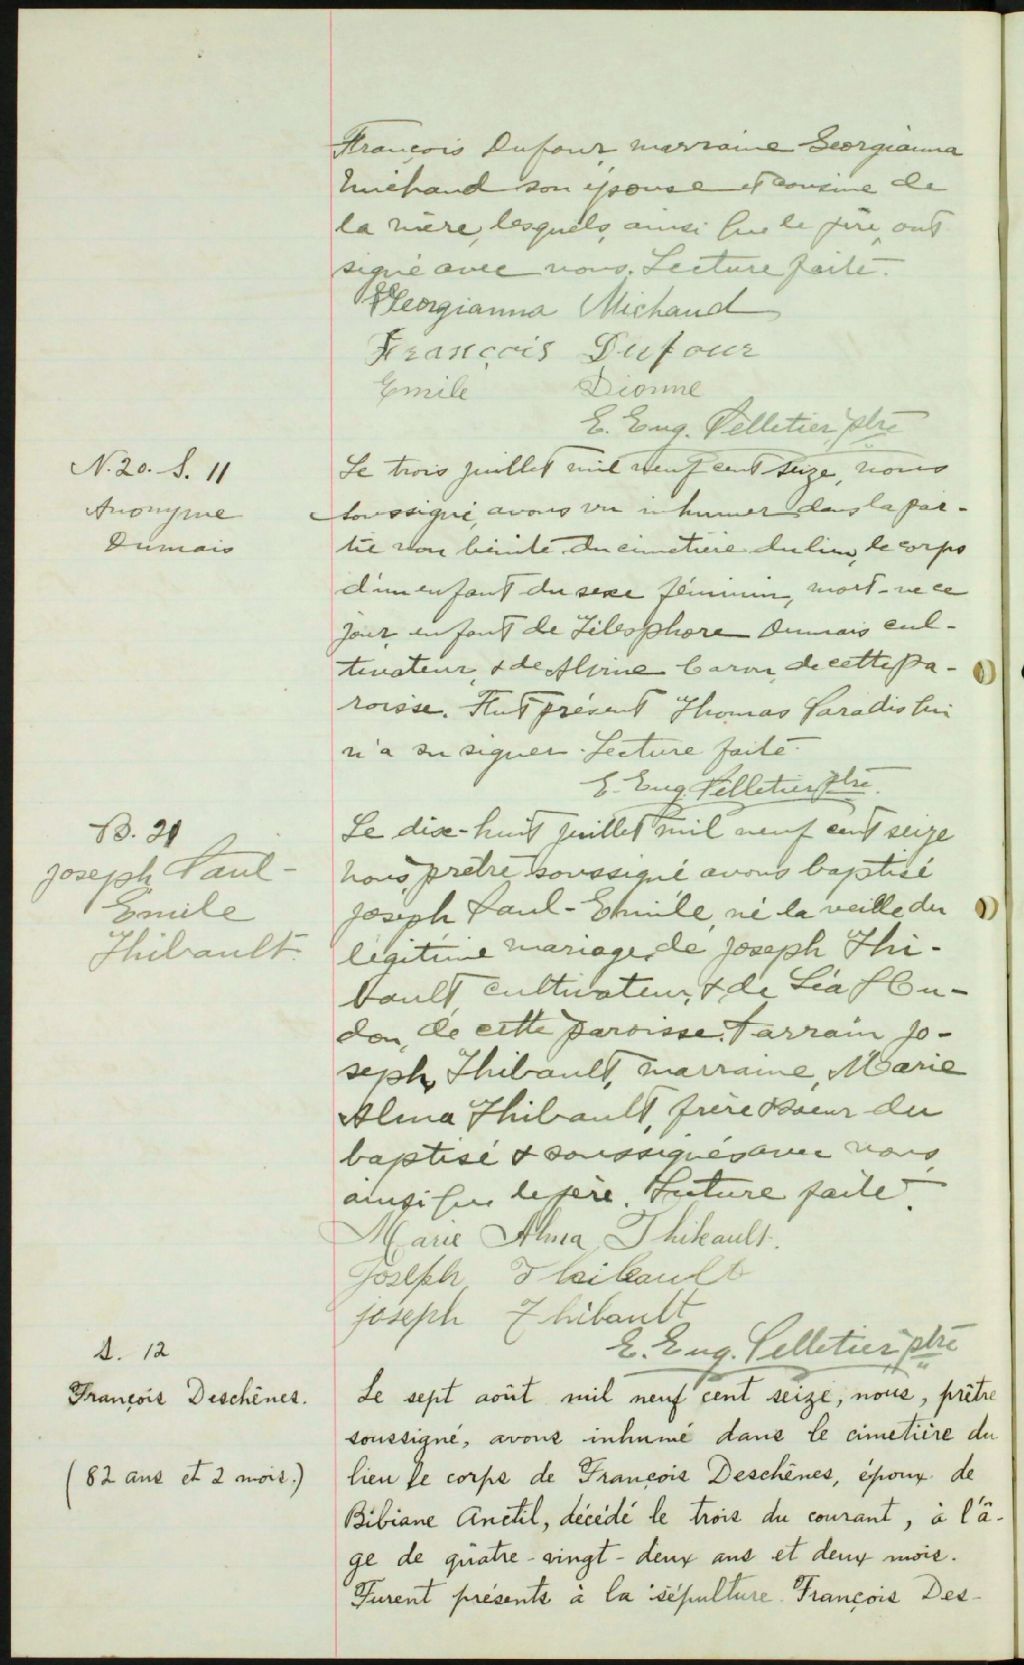 François Dufour, marraine Georgianna
Michaud son épouse et cousine de
la mère, lesquels, ainsi que le père, ont
signé avec nous. Lecture faite.
Georgianna Michaud
François Dufour
Emile Dionne
E. Eug. Pelletier ptre
N. 20. S. 11
Anonyme
Dumais
Le trois juillet mil neuf cent seize, nous
soussigné, avons vu inhumer dans la par-
tie non bénite du cimetière du lieu, le corps
d'un enfant du sexe féminin, mort-né ce
jour, enfant de Télesphore Dumais cul-
tivateur, & de Alvine Caron, de cette pa-
roisse. Fut présent Thomas Paradis qui
n'a su signer. Lecture faite.
E. Eug. Pelletier ptre.
B. 21
Joseph Paul-
Emile
Thibault.
Le dix-huit juillet mil neuf cent seize
nous, prêtre soussigné avons baptisé
Joseph Paul-Emile, né la veille du
légitime mariage de Joseph Thi-
bault, cultivateur, & de Léa Hu-
don, de cette paroisse. Parrain Jo-
seph Thibault, marraine, Marie
Alma Thibault, frère & soeur du
baptisé & soussignés avec nous,
ainsi que le père. Lecture faite.
Marie Alma Thibault.
Joseph Thibault
Joseph Thibault
E. Eug. Pelletier, ptre
S. 12
François Deschênes.
(82 ans et 2 mois.)
Le sept août mil neuf cent seize, nous, prêtre
soussigné, avons inhumé dans le cimetière du
lieu le corps de François Deschênes, époux de
Bibiane Anctil, décédé le trois du courant, à l'â-
ge de quatre-vingt-deux ans et deux mois.
Furent présents à la sépulture François Des-